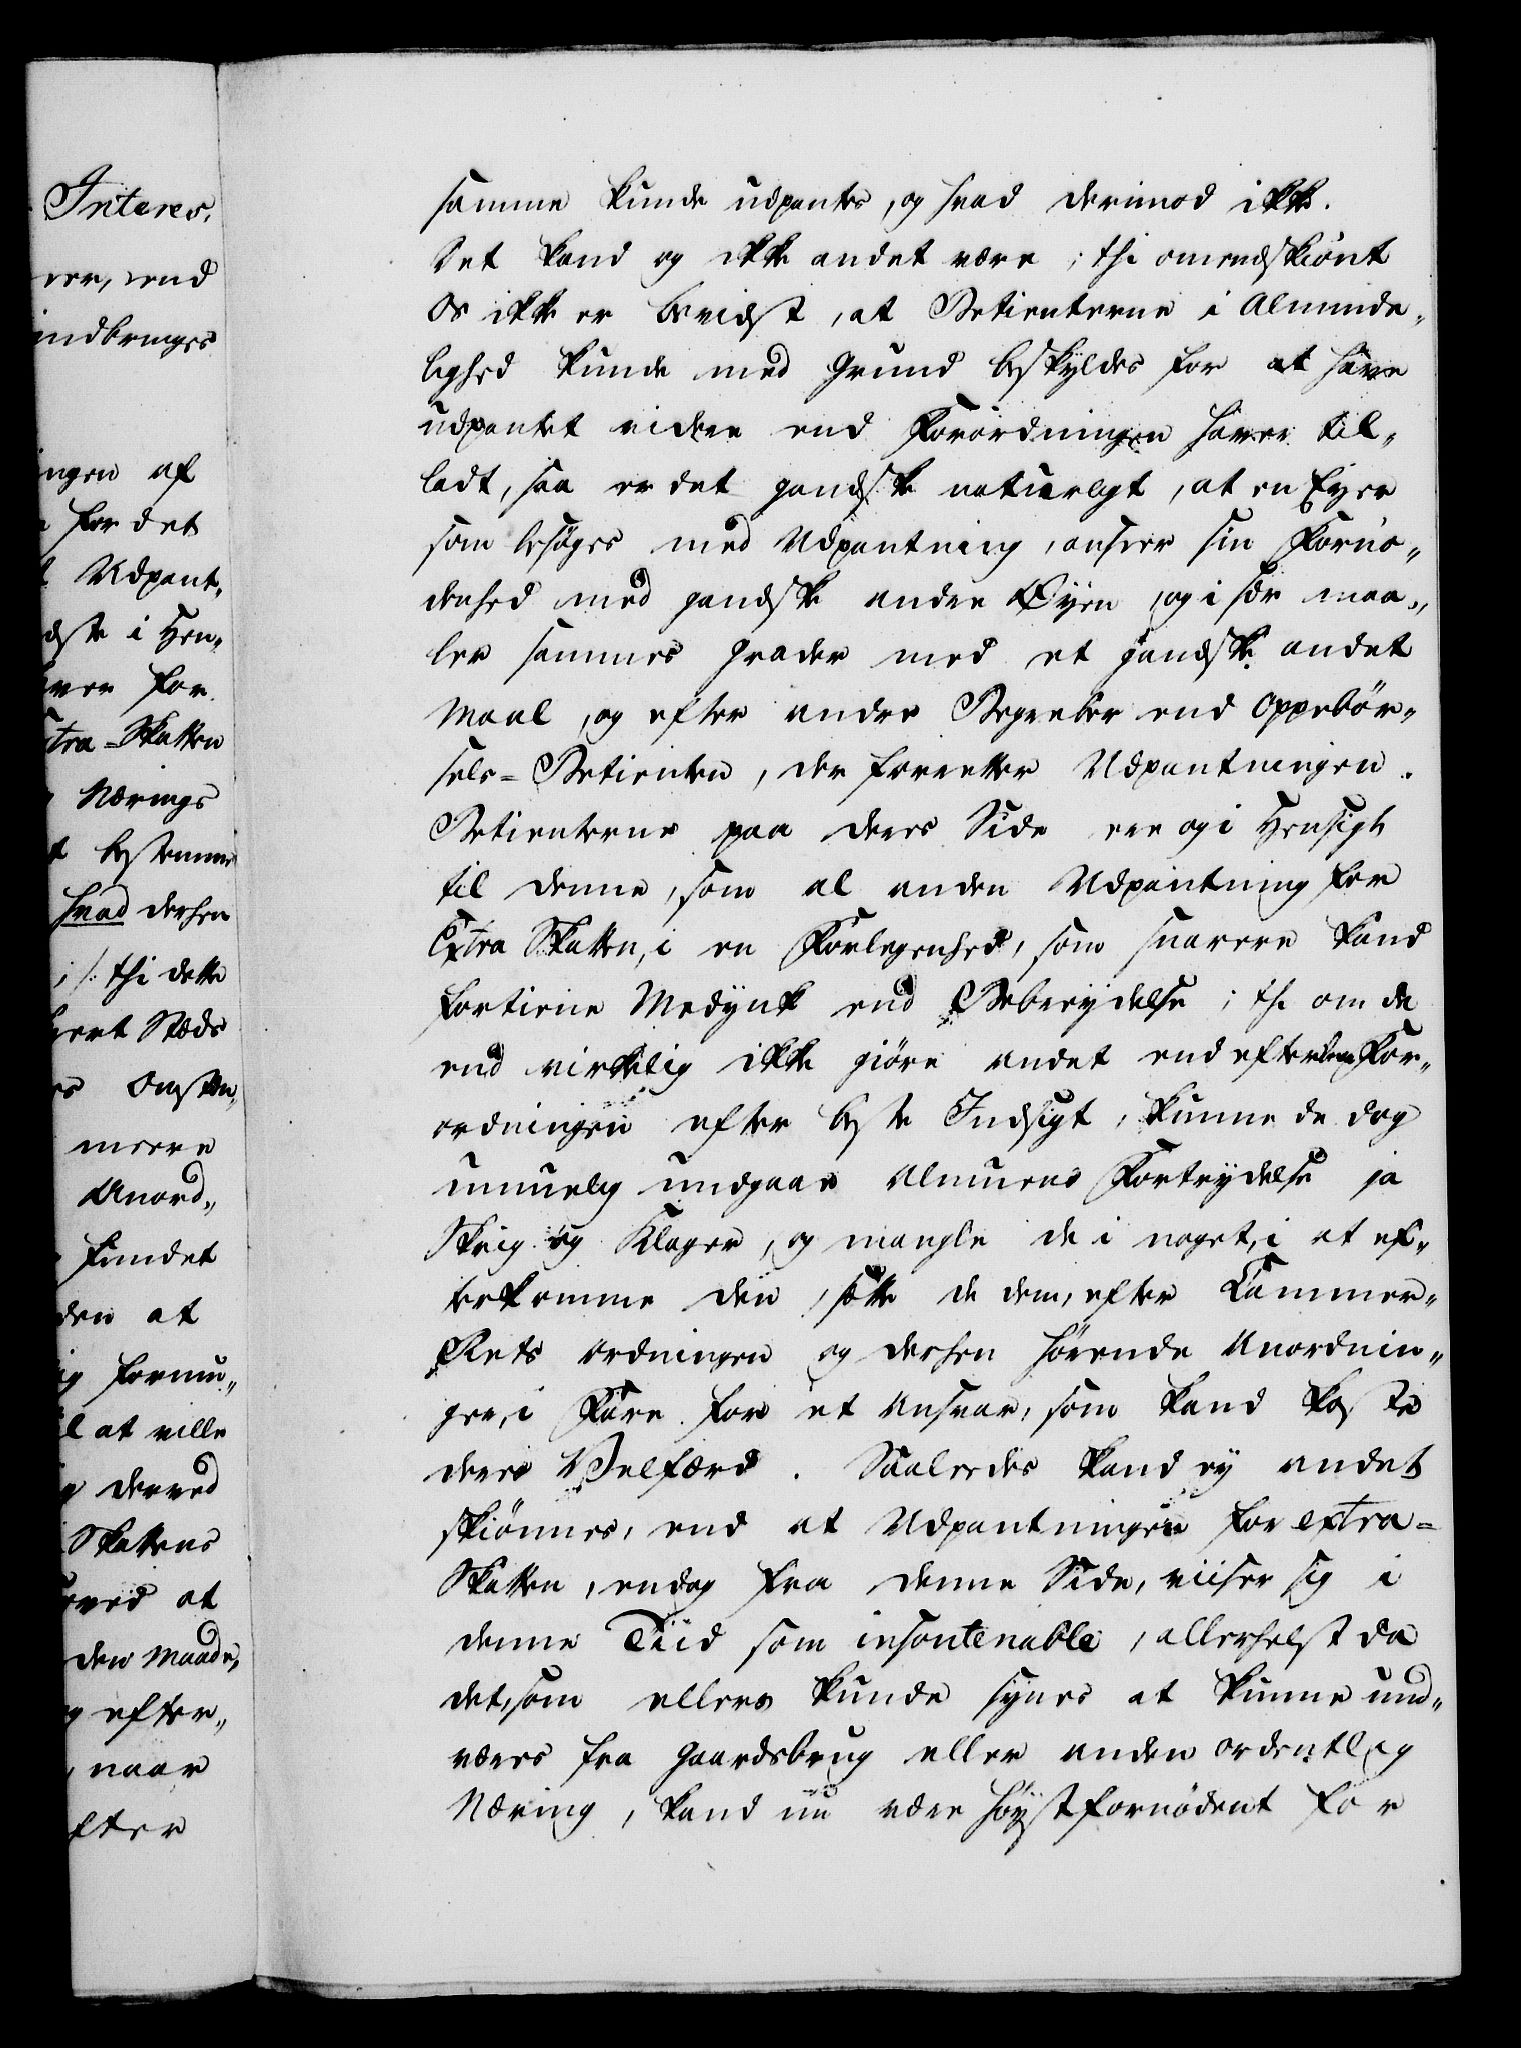 Interes,
ver, end
indbringes
ingen af
for det
Udpant,
dste i Hen„
ver for
tra-Skatten
Nærings
t bestemme
hvad dershen
; /: thi dette
hvert Steds
es Omstæn„
meere
Anord„
fundet
den at
ig formu„
l at ville
g derved
Skattens
erved at
den Maade,
g efter„
, naar
fter
samme kunde udpantes, og hvad derimod ikke.
Det kand og ikke andet være; thi omendskiönt
Os ikke er bevidst, at Betienterne i Alminde„
lighed kunde med Grund beskyldes for at have
udpantet videre end Forordningen haver til„
ladt, saa er det gandske naturligt, at en Eyer
som besøges med Udpantning, anseer sin Fornö„
denhed med gandske andre Øyen, og i sær maa„
ler sammes Grader med et gandske andet
Maal, og efter andre Begreber end Oppebör„
sels=Betienten, der forretter Udpantningen.
Betienterne paa deres Side ere og i Hensigt
til denne, som al anden Udpantning for
Extra Skatten, i en Forlegenhed, som snarere kand
fortiene Medynk end Bebreydelse; thi om de
end virkelig ikke giöre andet end efterlem For„
ordningen efter beste Indsigt, kunne de dog
umuelig undgaae Almuens Fortrydelse ja
Skrig og Klager, og mangle de i noget, i at ef„
terkomme den, sætte de dem, efter Cammer„
Rets Ordningen og dershen hörende Anordnin„
ger, i Fare for et Ansvar, som kand koste
deres Velfærd. Saaledes kand ey andet
skiönnes, end at Udpantningen for extra=
Skatten, endog fra denne Side, viiser sig i
denne Tiid som insoutenable, allerhelst da
det, som ellers kunde synes at kunne und„
væres fra Gaardsbrug eller anden ordentlig
Næring, kand nu være höystfornödent for